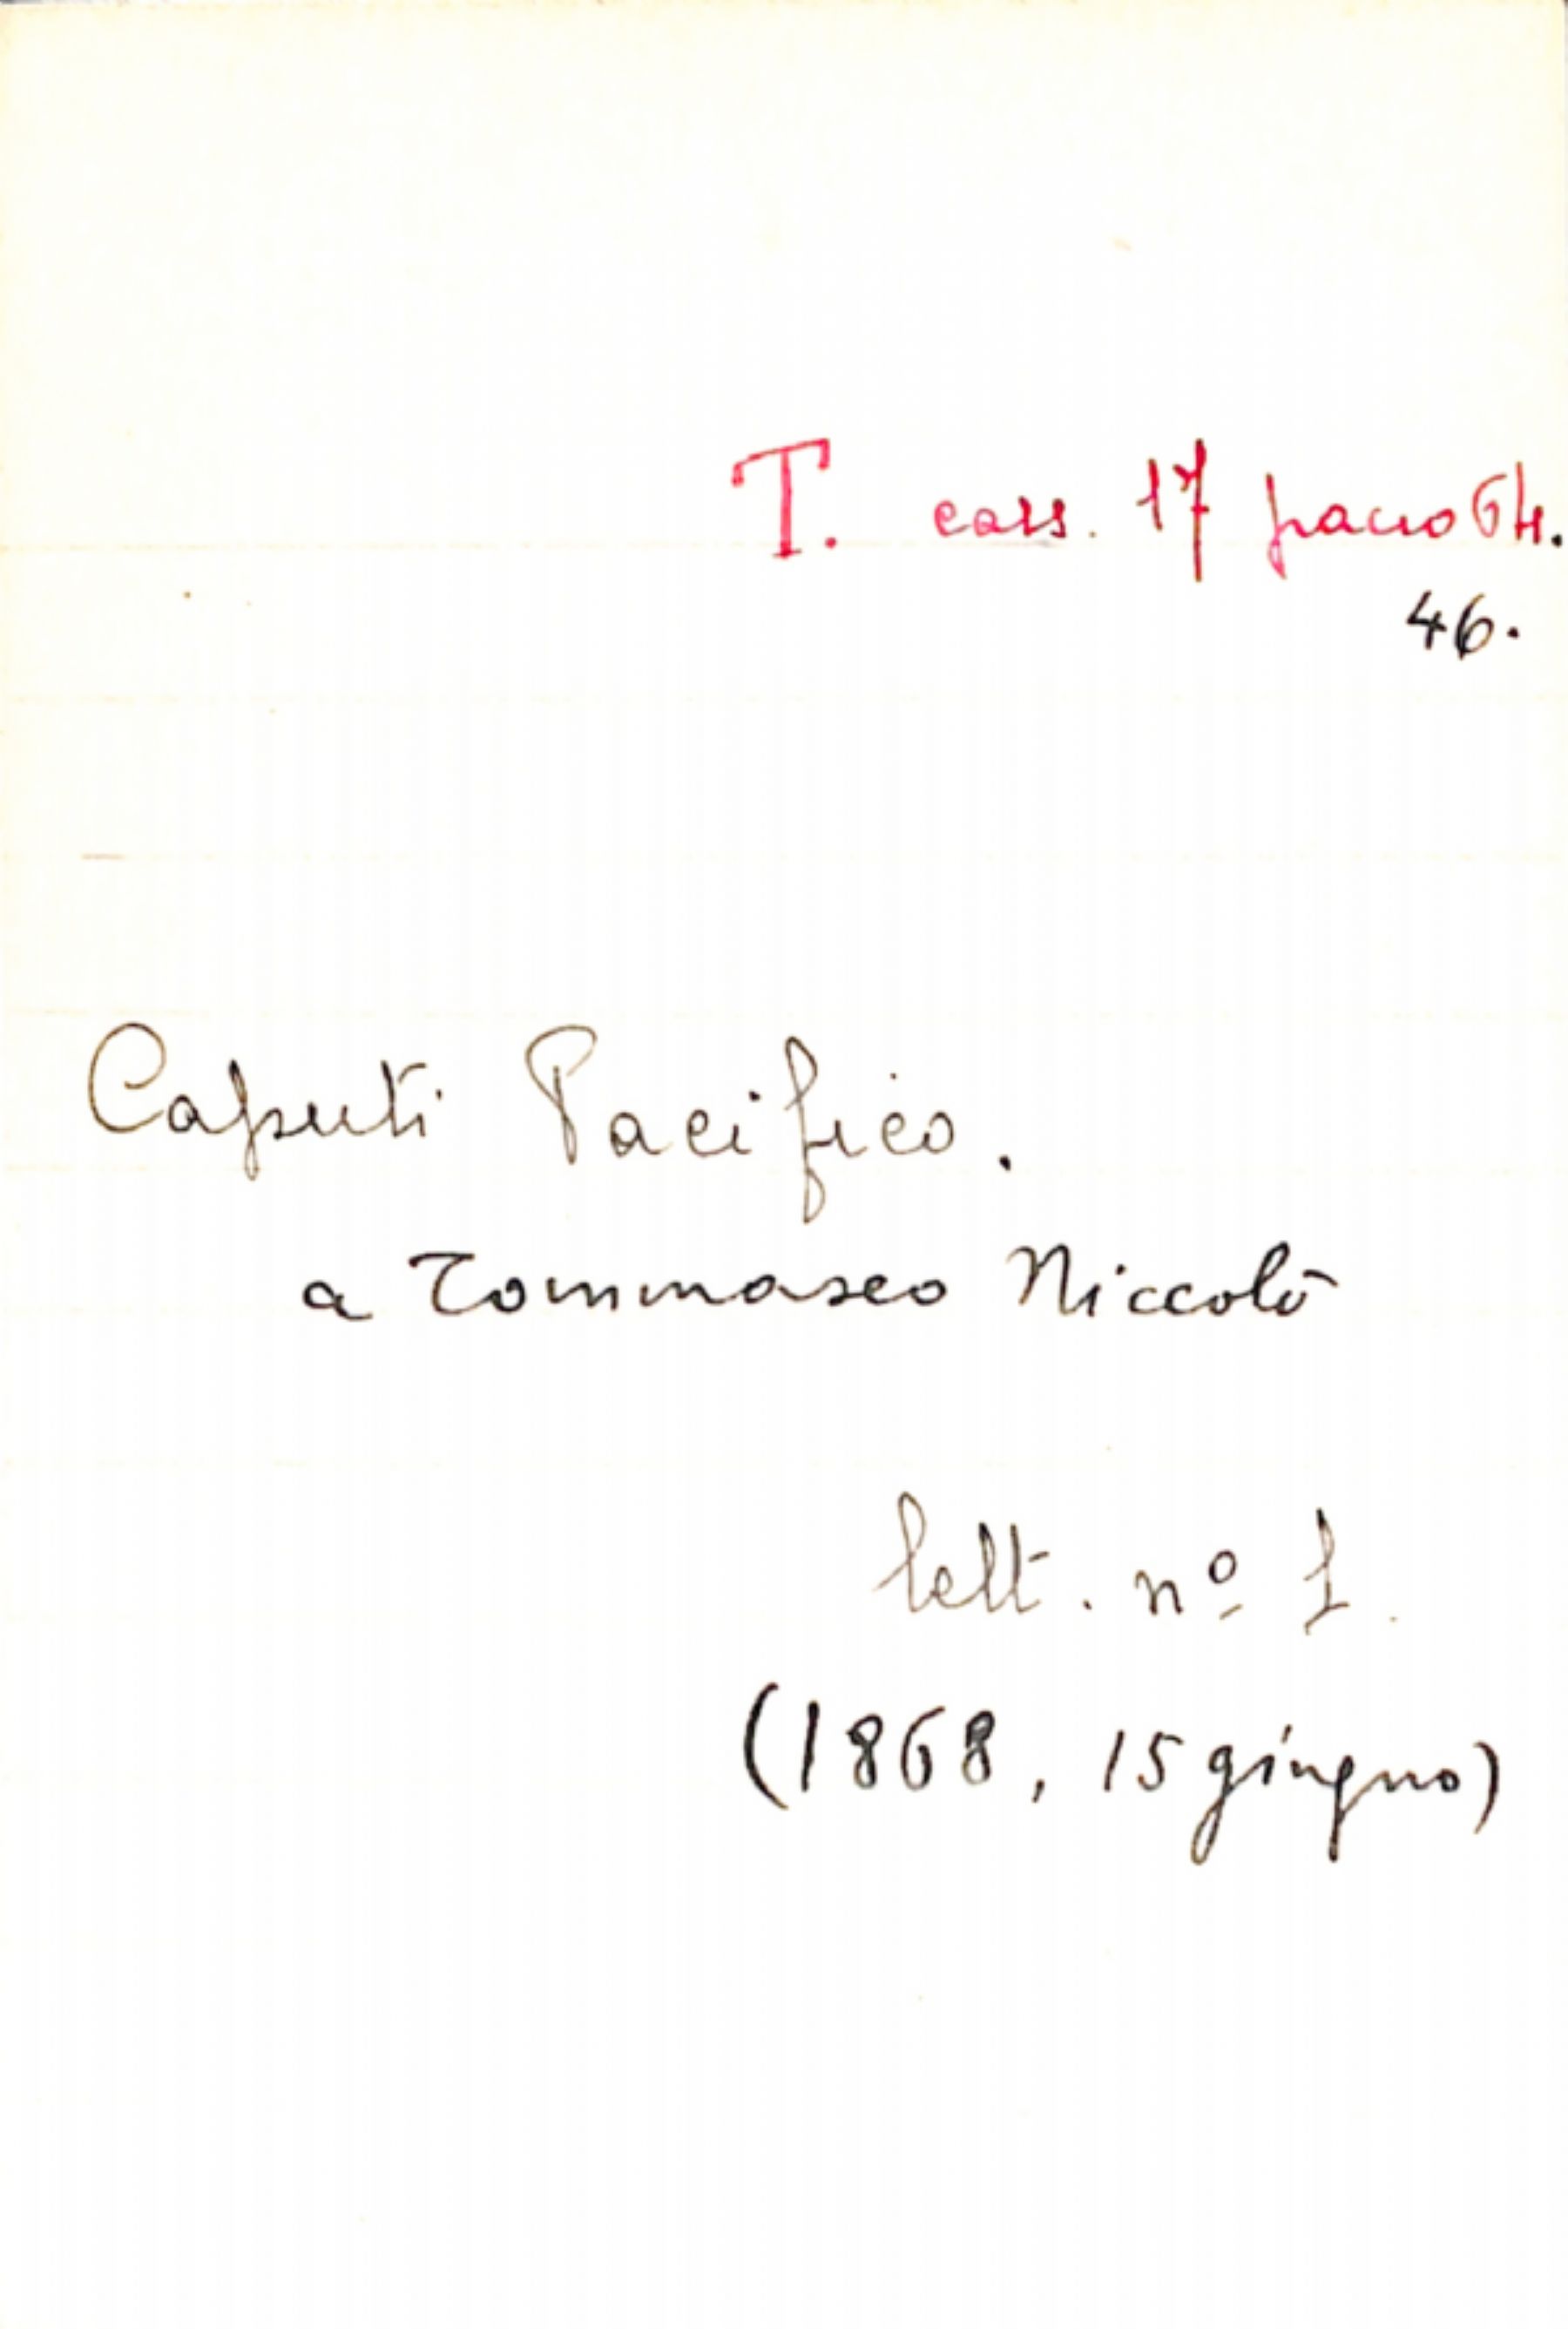 T. cass. 17 pacco 64.
46.
Caputi Pacifico.
a Tommaseo Niccolò
lett. nº 1.
(1868, 15 giugno)